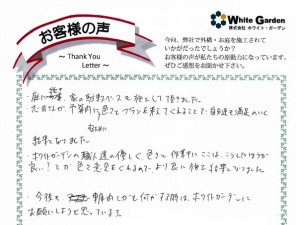 お客様の声
～ Thank You
Letter ～
White Garden
株式会社 ホワイト・ガーデン
今回、弊社で外構・お庭を施工されて
いかがだったでしょうか？
お客様の声が私たちの原動力になっています。
ぜひご感想をお聞かせ下さい。
庭に 家の駐車スペースを施工して頂きました。
予算内に色々とプランを考えてくれることで 自分達も満足のいく
結果となりました。
ホワイトガーデンの職人達の優しく色々と作業中にここは、こうしたほうが
良い！とか色々意見をくれるので、より良い施工結果になりました。
今後も、 何かする時は、ホワイトガーデンに
お願いしようと思っています。